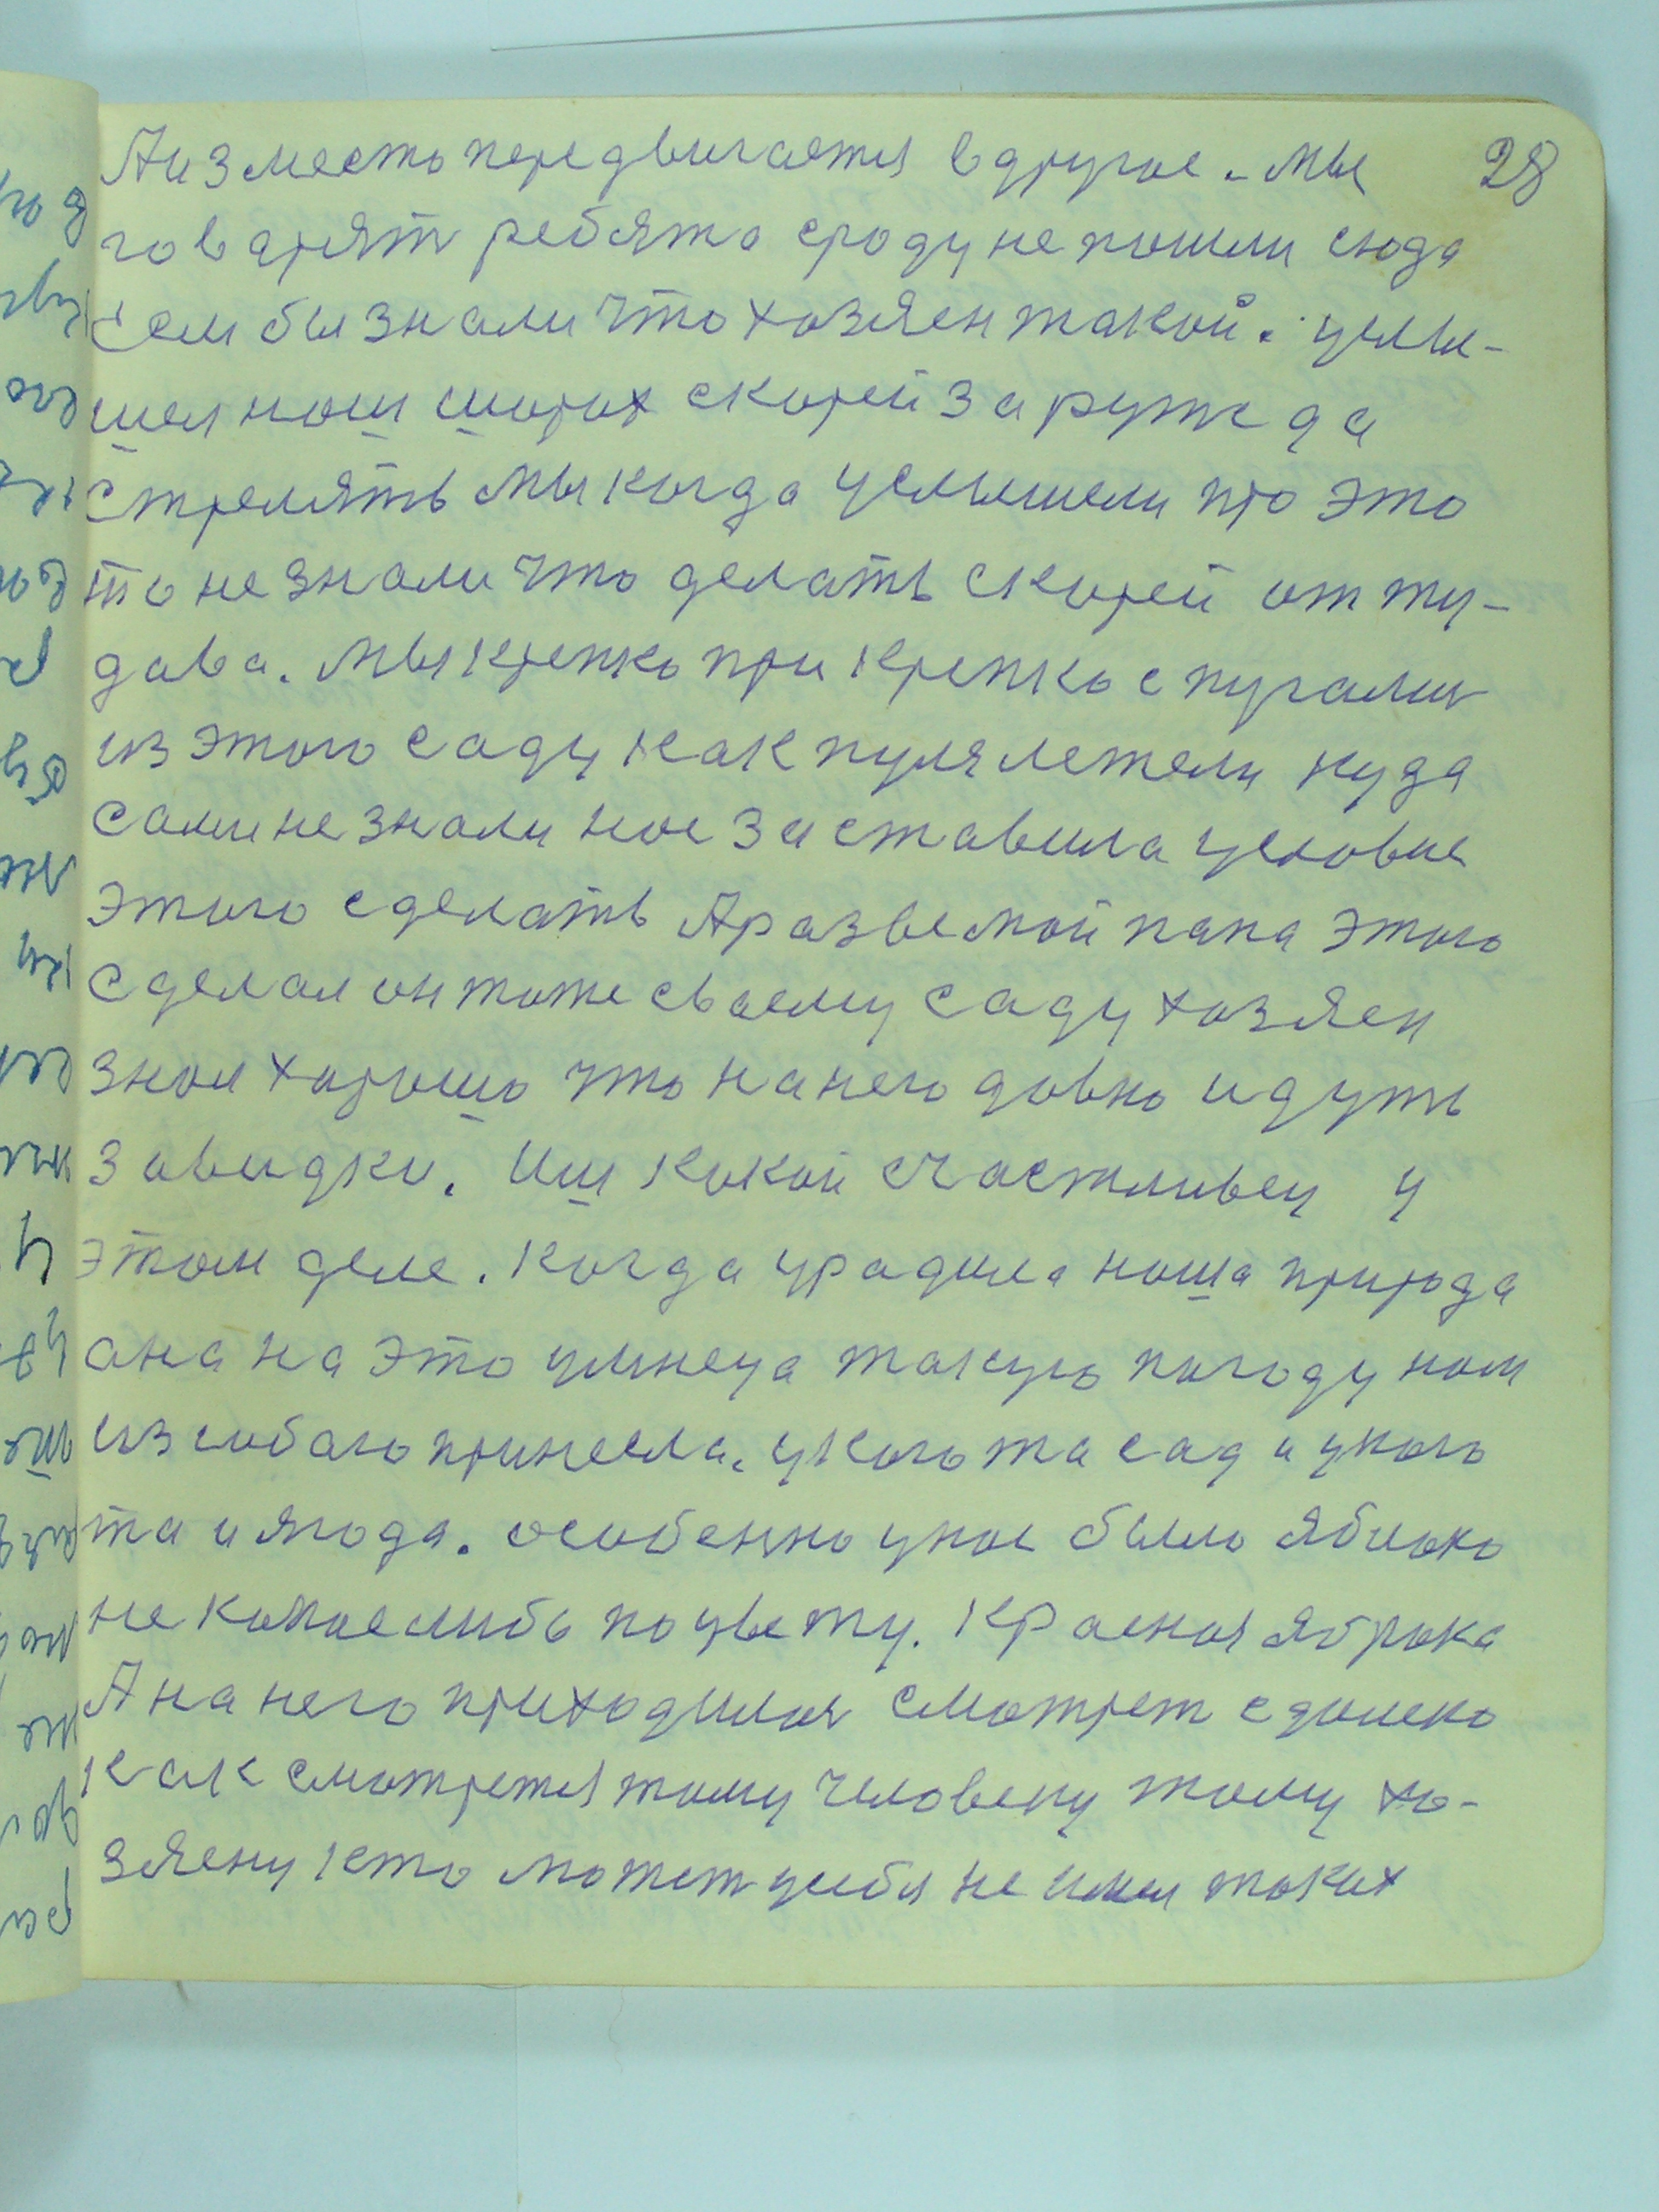 28
А из место передвигается в другое. – мы
говарят ребята сроду не пошли сюда
если бы знали что хозяен такой. услы-
шел наш шорох скорей за руже да
стрелять мы когда услышели про это
то не знали что делать скорей от ту-
дава. мы крепко при крепко спугалис
из этого саду как пуля летели куда
сами не знали нас заставила условие
этого сделать А разве мой папа этого
сделал он тоже своему саду хозяен
знал хорошо что на него давно идуть
завидки. иш какой счастливец у
этом деле. когда урадила наша природа
ана на это умнеца такую погоду нам
из собаю принесла. у кого та сад а у кого
та и ягода. особенно у нас было яблоко
не какое либо по цвету. Красная яблока
А на него приходилас смотрет с далека
как смотрется тому человеку тому хо-
зяену кто может у себя не имел таких